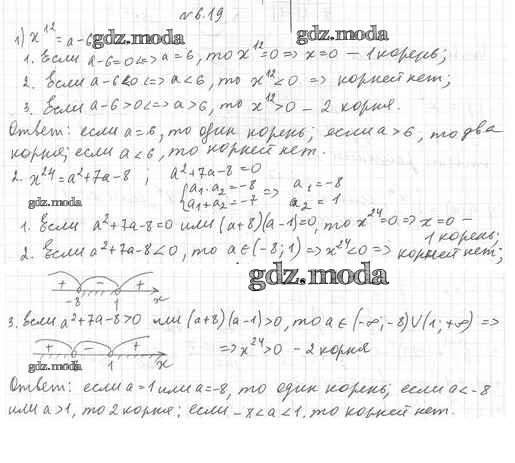 № 6.19
1) x¹² = a-6
gdz.moda
gdz.moda
1. Если a-6=0 <=> a=6, то x¹²=0 => x=0 – 1 корень;
2. Если a-6<0 <=> a<6, то x¹²<0 => корней нет;
3. Если a-6>0 <=> a>6, то x¹²>0 – 2 корня.
Ответ: если a=6, то один корень; если a>6, то два
корня; если a<6, то корней нет.
2. x²⁴=a²+7a-8 ; a²+7a-8=0
{a₁·a₂=-8 => a₁=-8
{a₁+a₂=-7 a₂=1
gdz.moda
1. Если a²+7a-8=0 или (a+8)(a-1)=0, то x²⁴=0 => x=0 –
1 корень;
2. Если a²+7a-8<0, то a∈(-8;1) => x²⁴<0 => корней нет;
gdz.moda
+ - +
-8 1 x
3. Если a²+7a-8>0 или (a+8)(a-1)>0, то a∈(-∞;-8)∪(1;+∞) =>
=> x²⁴>0 – 2 корня
+ - +
gdz.moda 1 x
Ответ: если a=1 или a=-8, то один корень; если a<-8
или a>1, то 2 корня; если -8<a<1, то корней нет.